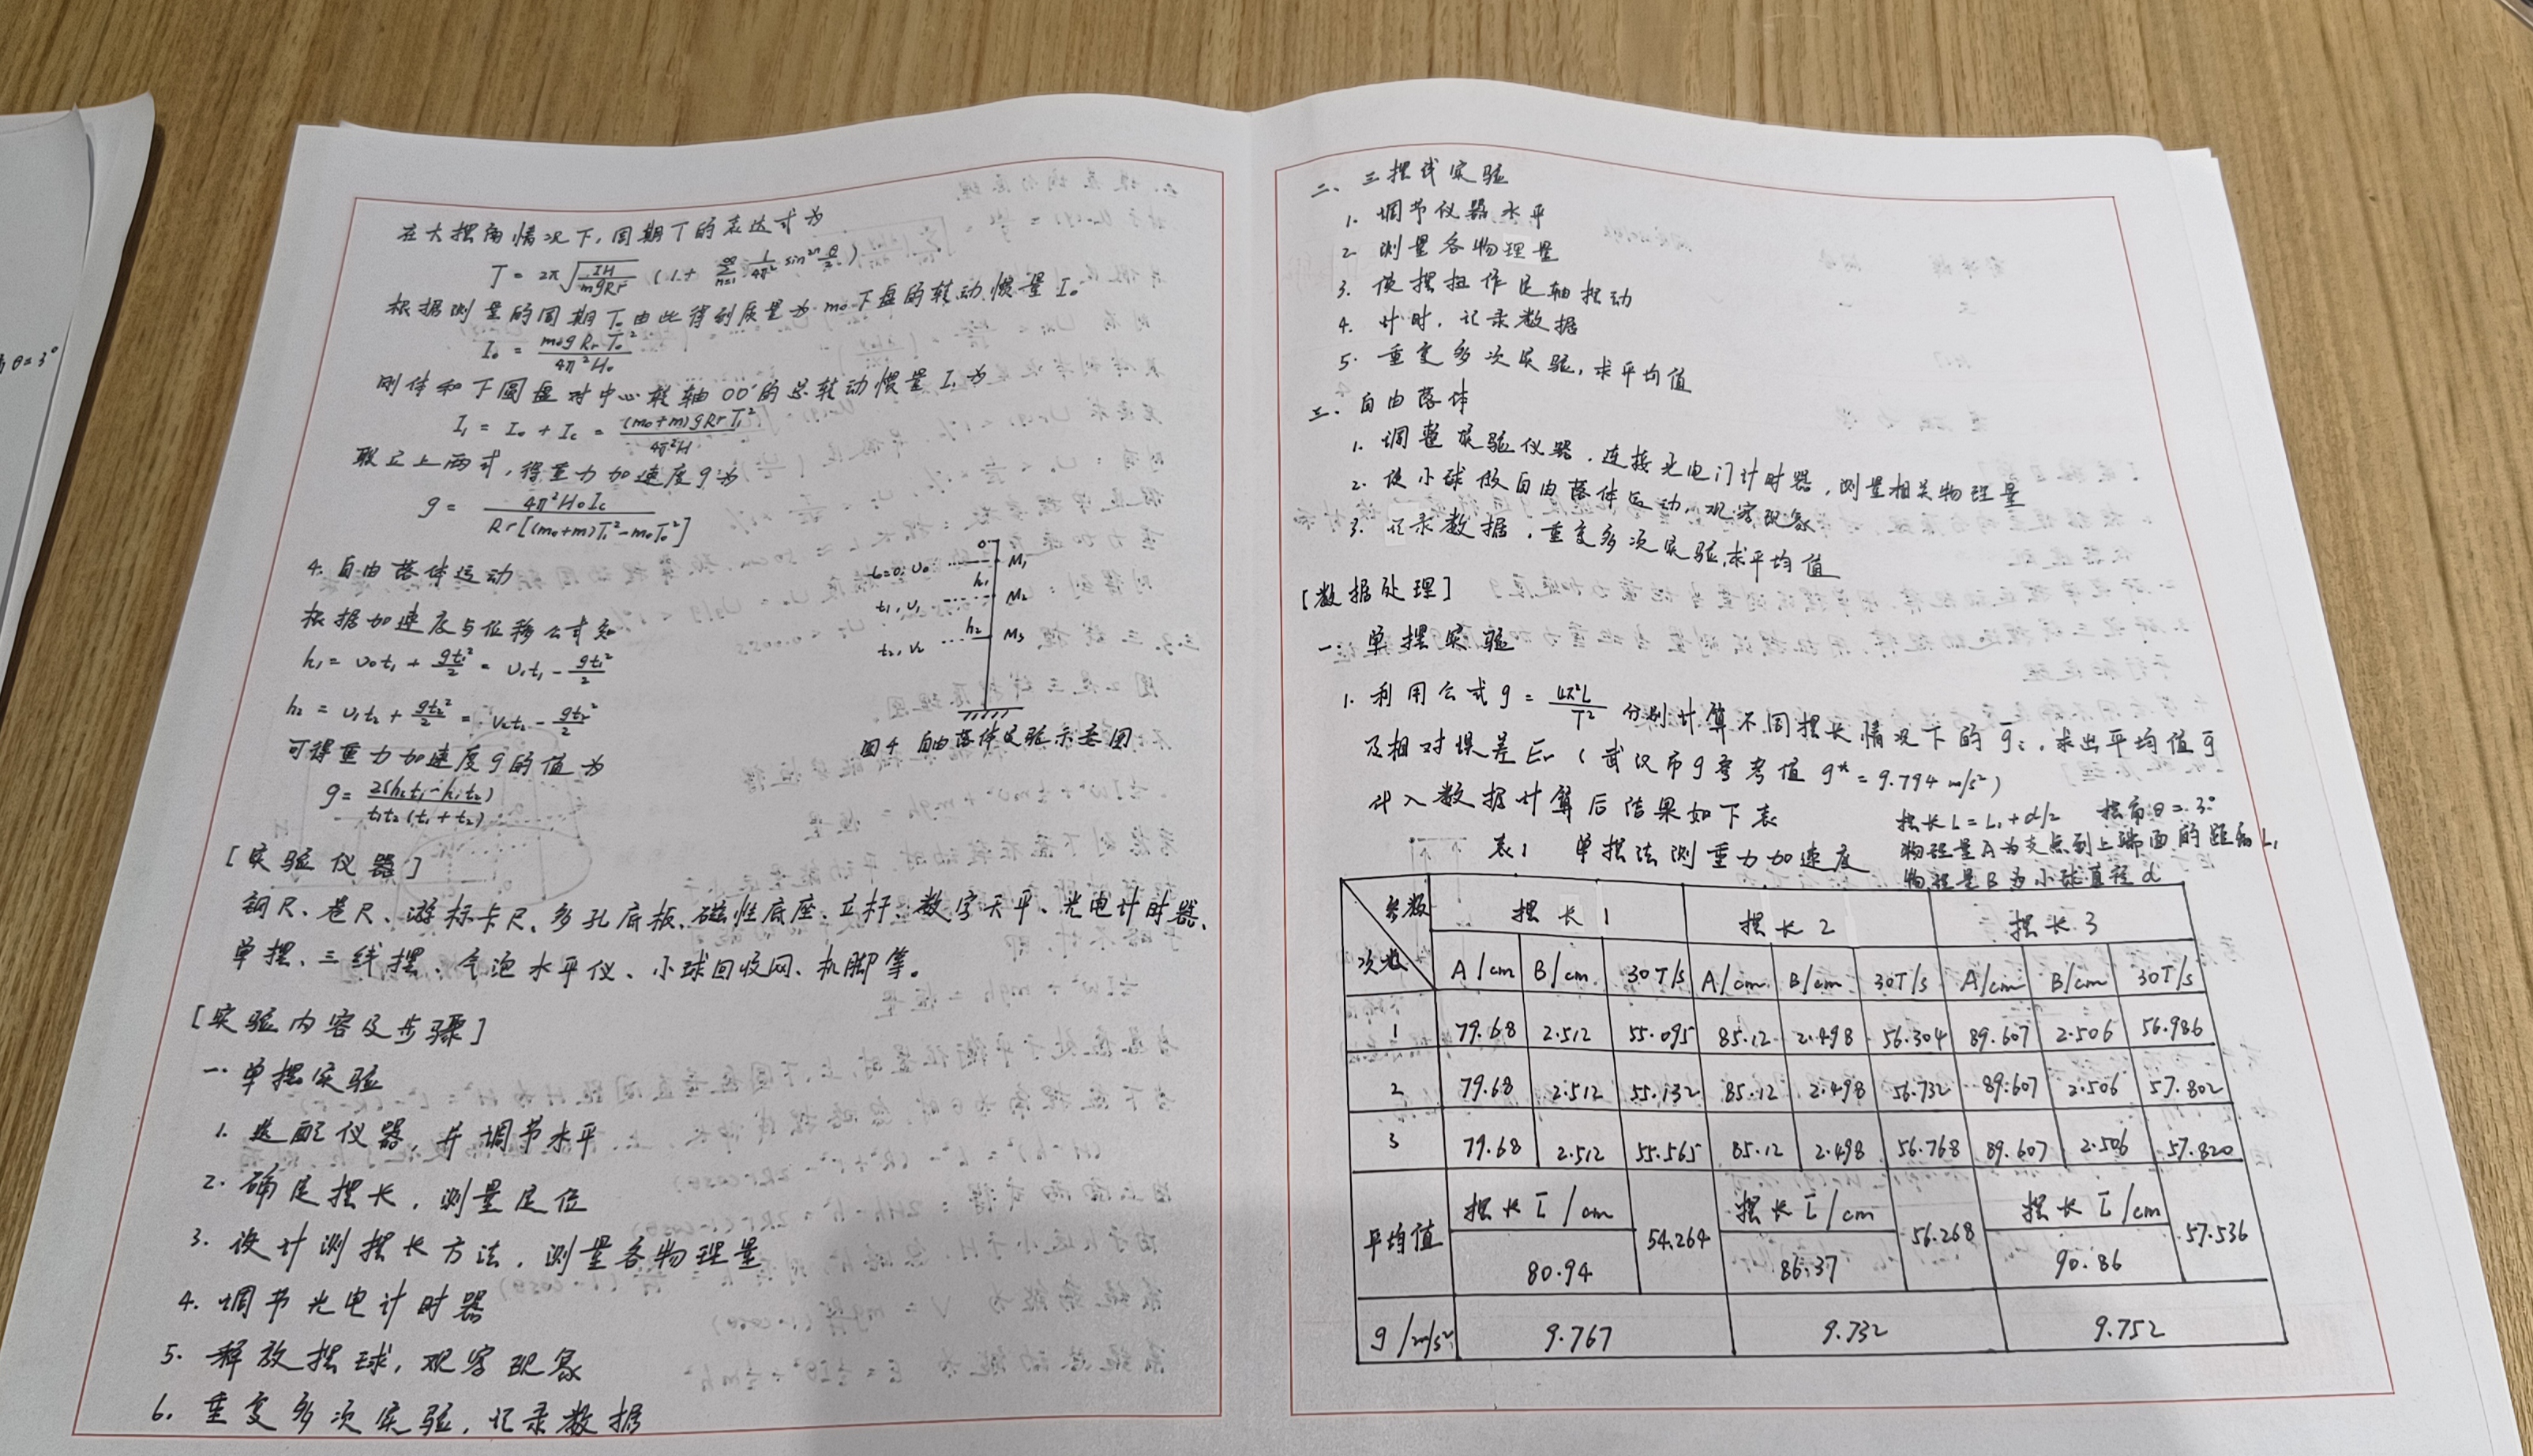 θ=3°
在大摆角情况下,周期T的表达式为
T = 2π√(IH/mgRr) (1+ ∑n=1∞ 1/4π² sin²ⁿ θ/2)
根据测量的周期T₀由此得到质量为m₀下盘的转动惯量I₀
I₀ = m₀gRrT₀²/4π²H₀
刚体和下圆盘对中心转轴OO'的总转动惯量I₁为
I₁ = I₀ + Ic = (m₀+m)gRrT₁²/4π²H
联立上两式,得重力加速度g为
g = 4π²H₀Ic/Rr[(m₀+m)T₁²-m₀T₀²]
4. 自由落体运动
根据加速度与位移公式知
h₁ = υ₀t₁ + gt₁²/2 = υ₁t₁ - gt₁²/2
h₂ = υ₁t₂ + gt₂²/2 = υ₂t₂ - gt₂²/2
可得重力加速度g的值为
g = 2(h₂t₁-h₁t₂)/t₁t₂(t₁+t₂)
0
t=0, υ₀ h₁ M₁
t₁, υ₁ M₂
t₂, υ₂ h₂ M₃
图4 自由落体实验示意图
[实验仪器]
钢尺、卷尺、游标卡尺、多孔底板、磁性底座、立杆、数字天平、光电计时器、
单摆、三线摆、气泡水平仪、小球回收网、机脚等。
[实验内容及步骤]
一.单摆实验
1. 选配仪器,并调节水平
2. 确定摆长,测量定位
3. 设计测摆长方法,测量各物理量
4. 调节光电计时器
5. 释放摆球,观察现象
6. 重复多次实验,记录数据
二、三摆线实验
1. 调节仪器水平
2. 测量各物理量
3. 使摆扭作定轴摆动
4. 计时,记录数据
5. 重复多次实验,求平均值
三、自由落体
1. 调整实验仪器,连接光电门计时器,测量相关物理量
2. 使小球做自由落体运动,观察现象
3. 记录数据,重复多次实验,求平均值
[数据处理]
一.单摆实验
1. 利用公式g = 4π²L/T² 分别计算不同摆长情况下的ḡᵢ,求出平均值ḡ
及相对误差Er (武汉市g参考值 g* = 9.794 m/s²)
代入数据计算后结果如下表
摆长L=L₁+d/2 摆角θ=3°
物理量A为支点到上端面的距离L₁
物理量B为小球直径d
表1 单摆法测重力加速度
参数 摆长1 摆长2 摆长3
次数 A/cm B/cm 30T/s A/cm B/cm 30T/s A/cm B/cm 30T/s
1 79.68 2.512 55.095 85.12 2.498 56.304 89.607 2.506 56.986
2 79.68 2.512 55.132 85.12 2.498 56.732 89.607 2.506 57.802
3 79.68 2.512 55.565 85.12 2.498 56.768 89.607 2.506 57.820
平均值 摆长L̄/cm 54.264 摆长L̄/cm 56.268 摆长L̄/cm 57.536
80.94 86.37 90.86
g/m/s² 9.767 9.732 9.752